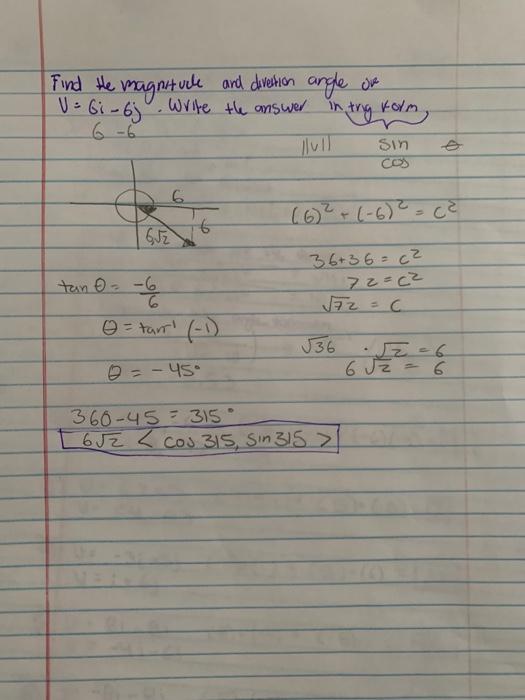 Find the magnitude and direction angle or
V = 6i - 6j. Write the answer in trig form
6 -6
||v|| sin θ
cos
6
6
6√2
(6)² + (-6)² = c²
36+36 = c²
72 = c²
√72 = c
√36 · √2 = 6
6√2 = 6
tan θ = -6/6
θ = tan⁻¹ (-1)
θ = -45°
360-45 = 315°
6√2 < cos 315, sin 315 >